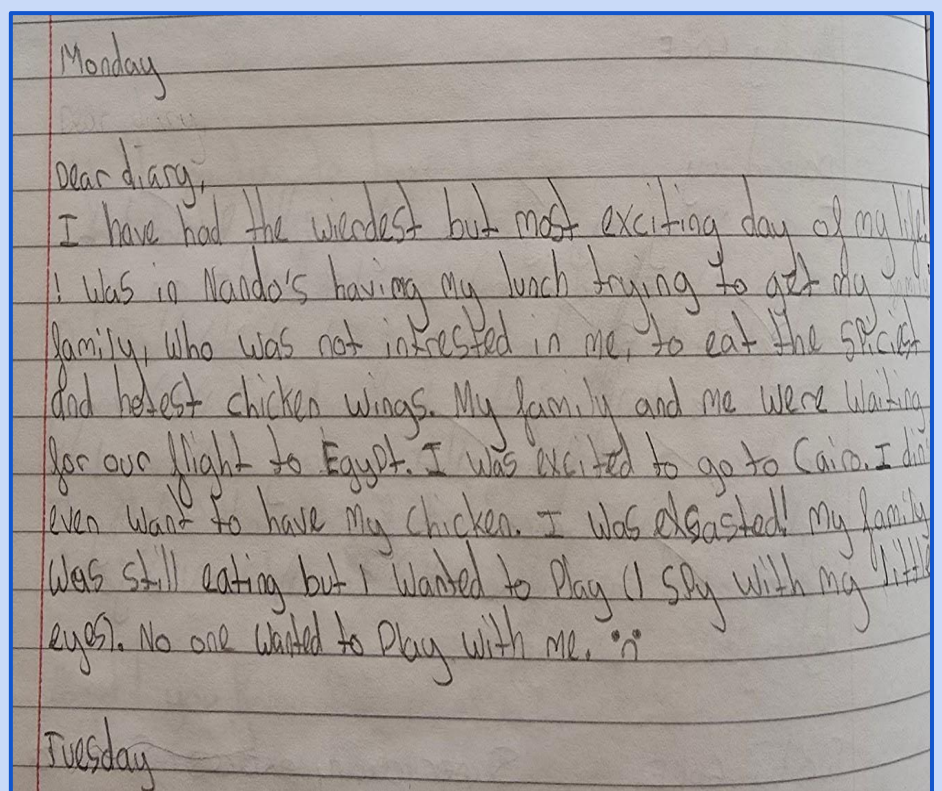 Monday
Dear diary,
I have had the wierdest but most exciting day of my life!
I was in Nando's having my lunch trying to get my
family, who was not intrested in me, to eat the spiciest
and hotest chicken wings. My family and me were waiting
for our flight to Egypt. I was excited to go to Cairo. I din
even want to have my chicken. I was exsasted! My family
was still eating but I wanted to play (I spy with my little
eyes). No one wanted to play with me.
Tuesday